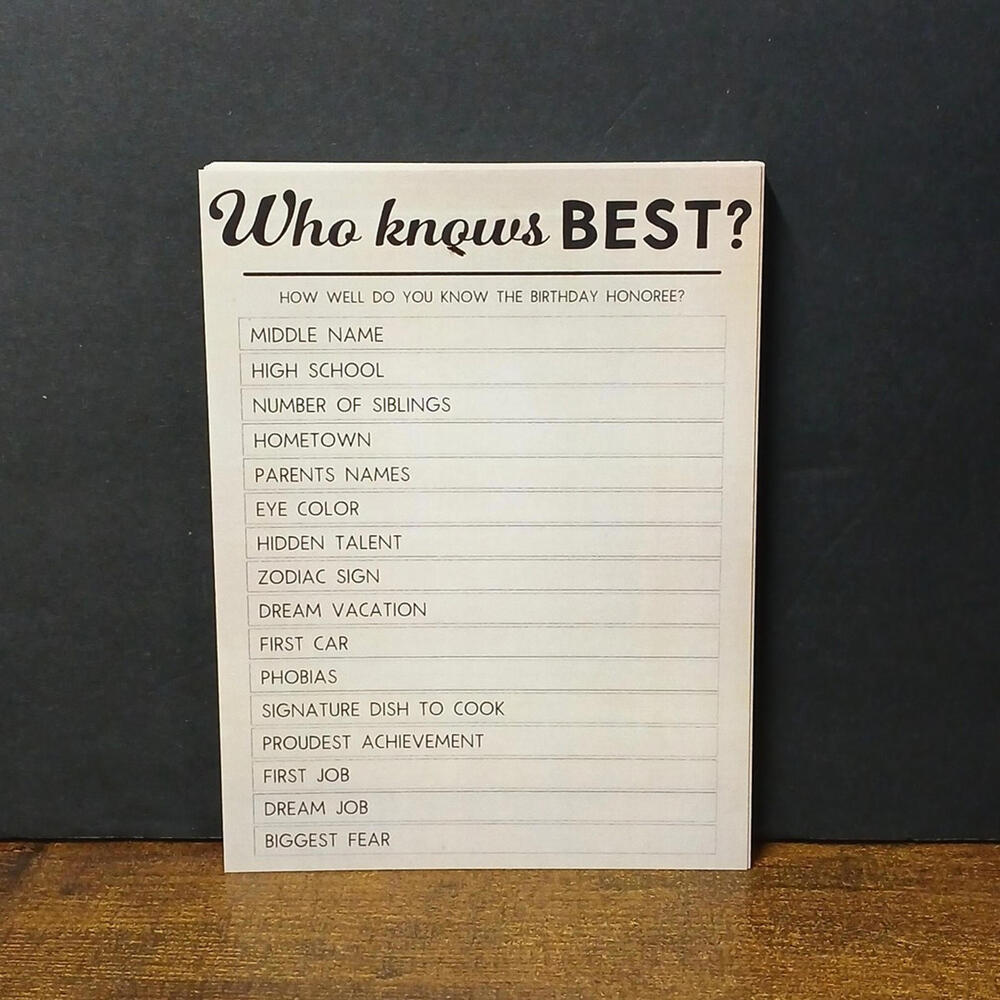 Who knows BEST?
HOW WELL DO YOU KNOW THE BIRTHDAY HONOREE?
MIDDLE NAME
HIGH SCHOOL
NUMBER OF SIBLINGS
HOMETOWN
PARENTS NAMES
EYE COLOR
HIDDEN TALENT
ZODIAC SIGN
DREAM VACATION
FIRST CAR
PHOBIAS
SIGNATURE DISH TO COOK
PROUDEST ACHIEVEMENT
FIRST JOB
DREAM JOB
BIGGEST FEAR